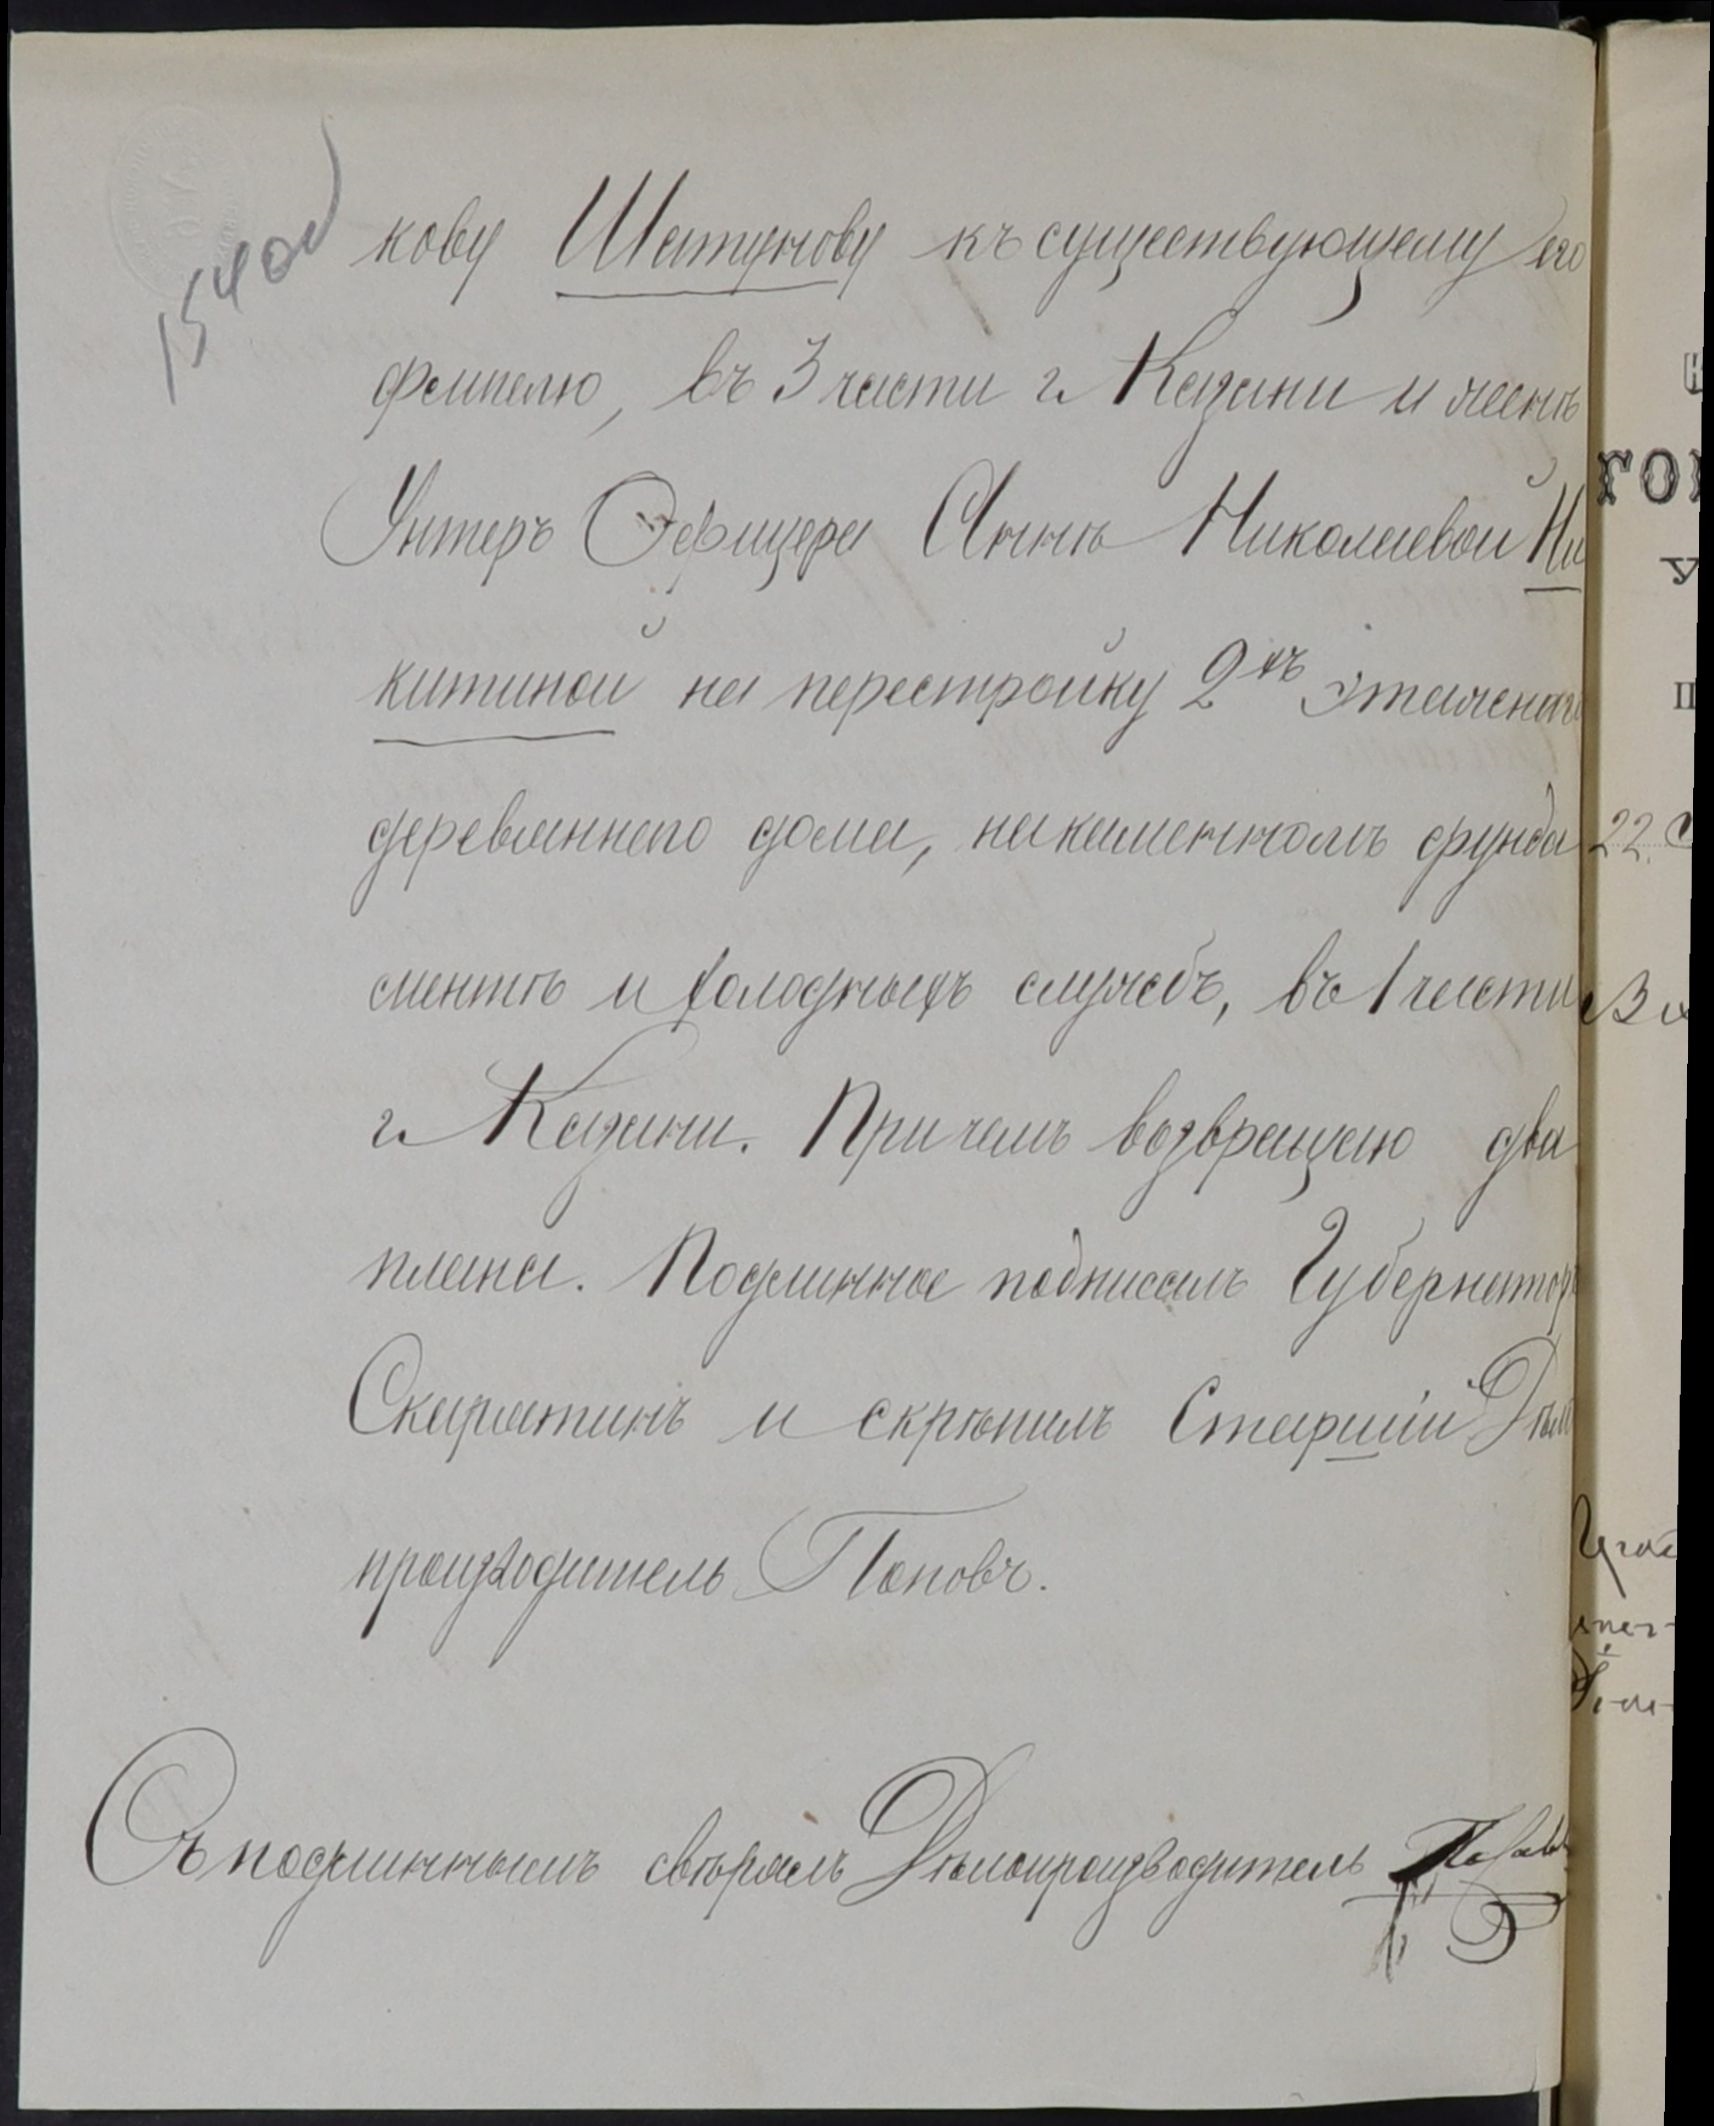 154 об
кову Шатунову къ существующему его
флигелю, въ 3 части г. Казани и женѣ
Унтеръ Офицера Аннѣ Николаевой Ни
китиной на перестройку 2хъ этажнаго
деревяннаго дома, на каменномъ фунда
ментѣ и холодныхъ службъ, въ 1 части
г. Казани. Причемъ возвращаю два
плана. Подлинное подписалъ Губернаторъ
Скарятинъ и скрѣпилъ Старшій Дѣло
производитель Поповъ.
Съ подлиннымъ свѣрялъ Дѣлопроизводитель
ГО
У
П
22